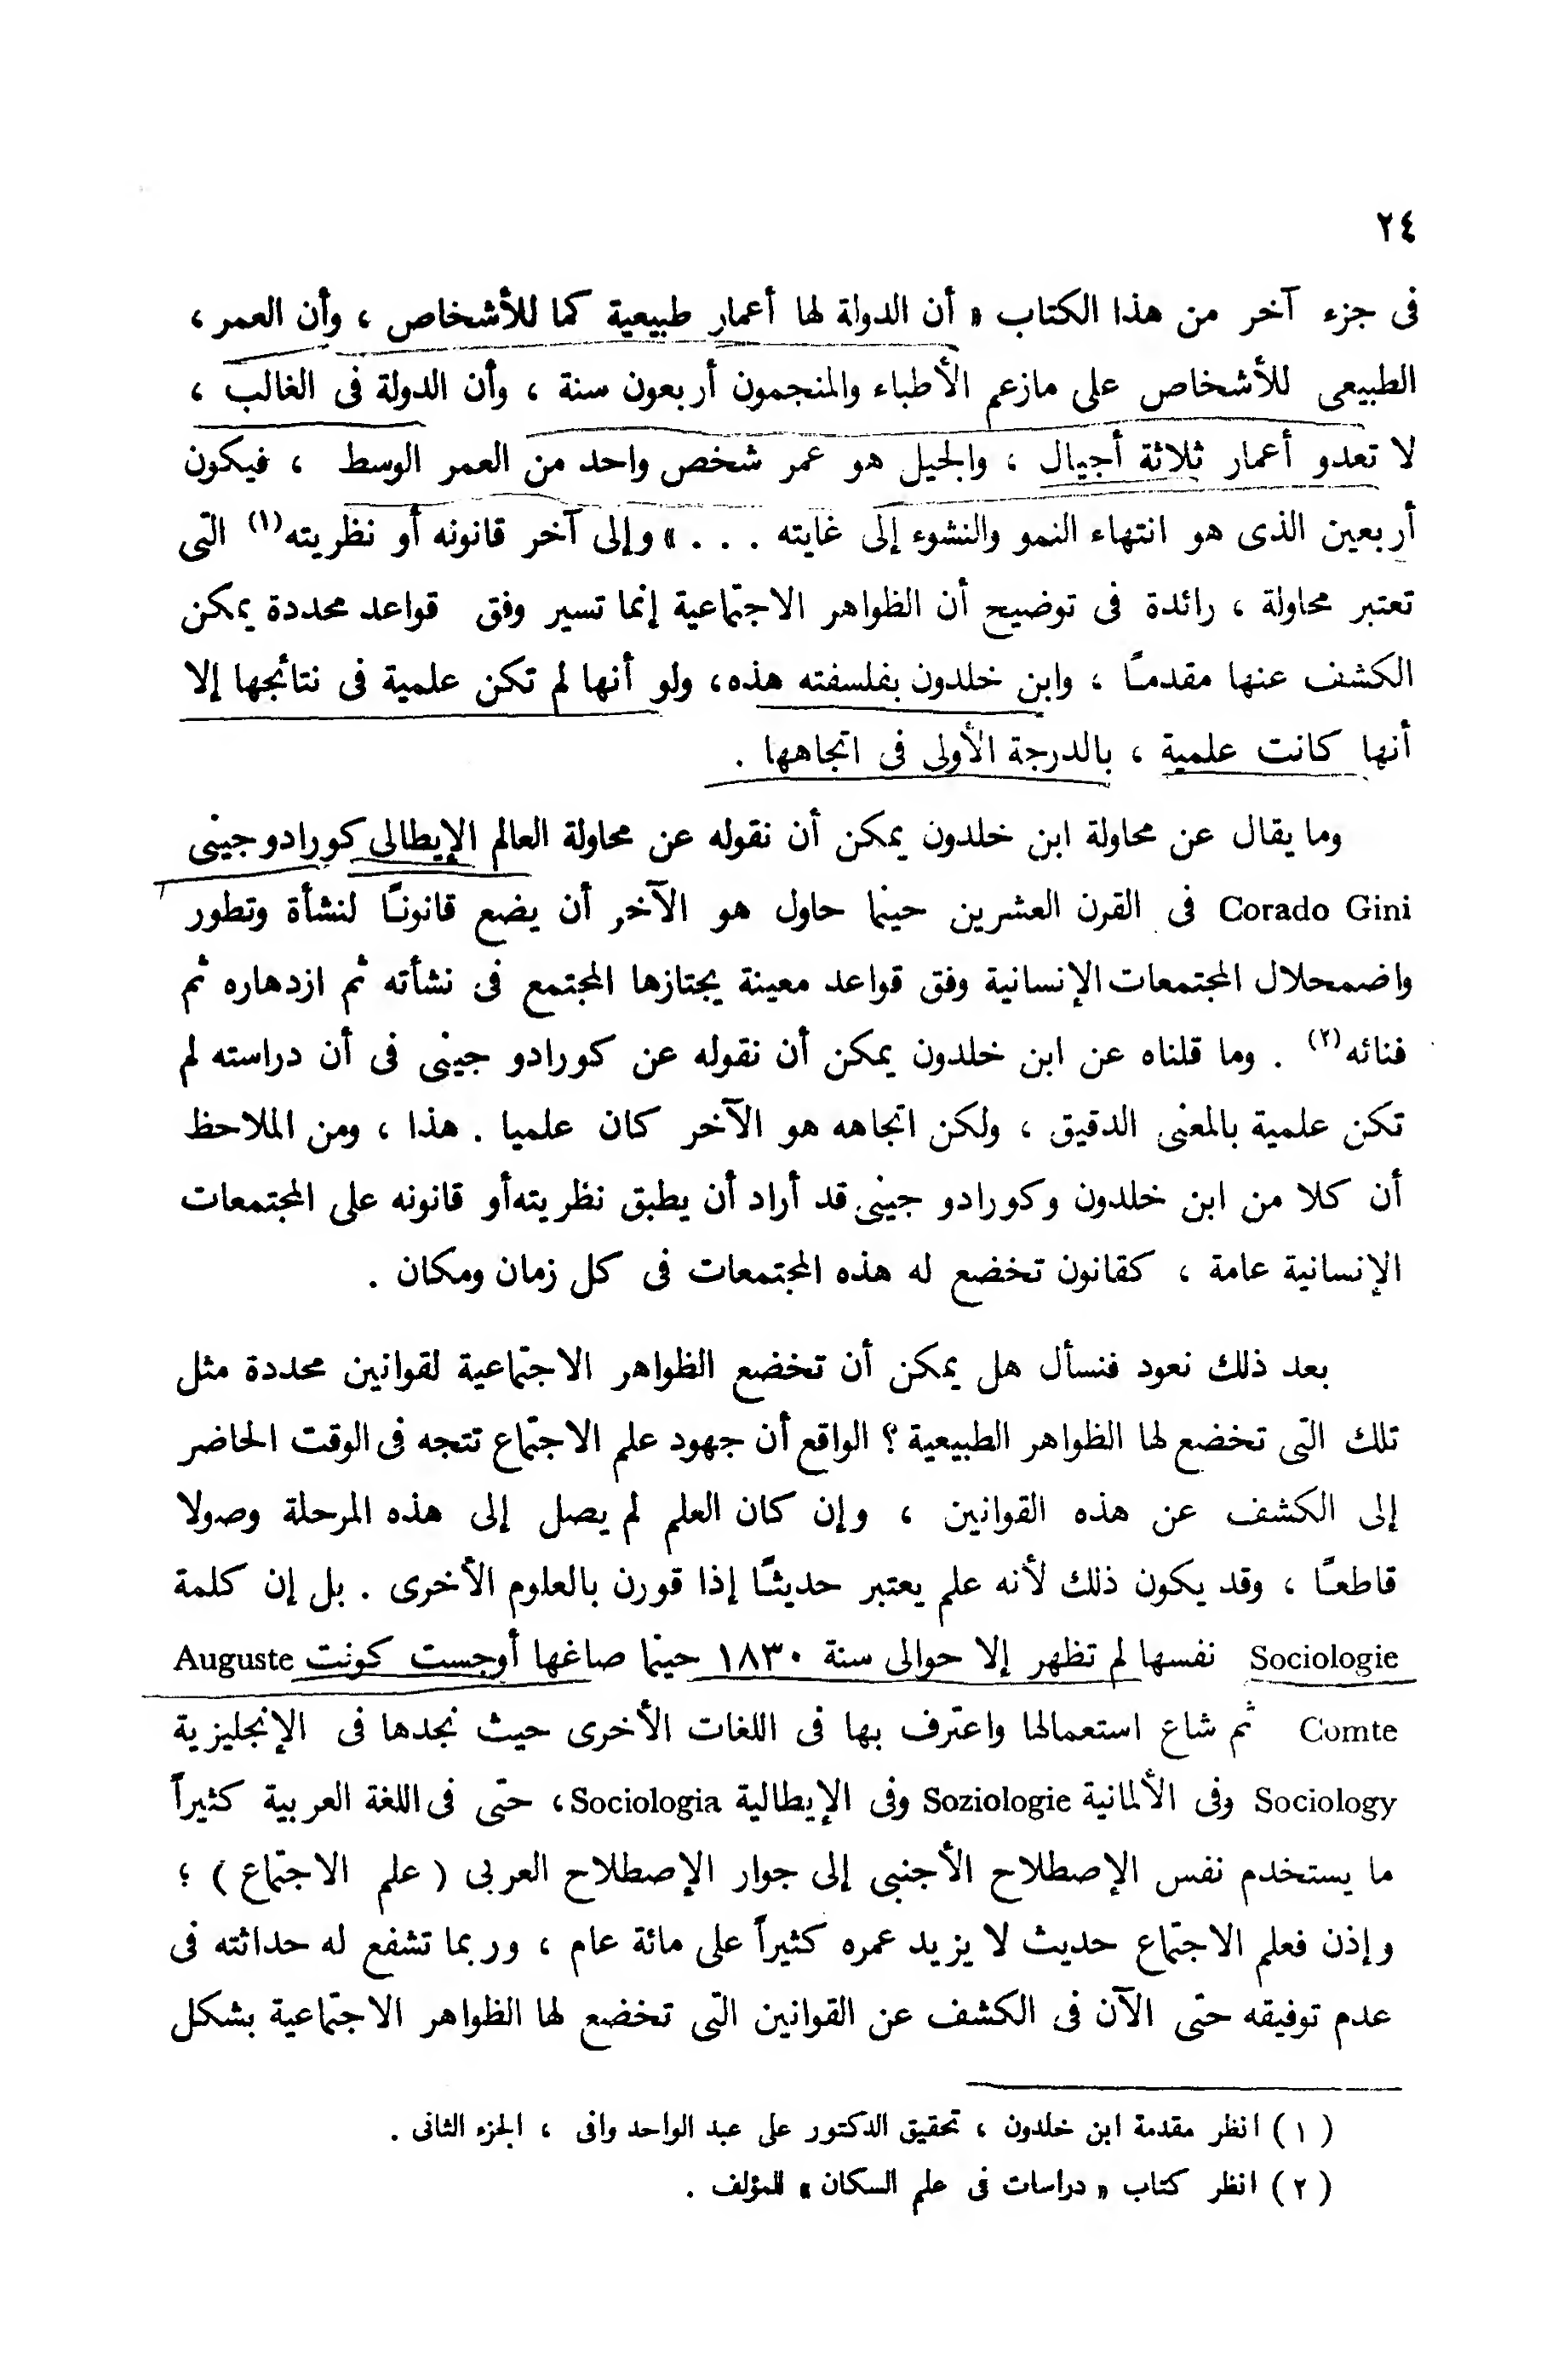 ٢٤
فى جزء آخر من هذا الكتاب « أن الدولة لها أعمار طبيعية كما للأشخاص ، وأن العمر ،
الطبيعى للأشخاص على مازعم الأطباء والمنجمون أربعون سنة ، وأن الدولة فى الغالب ،
لا تعدو أعمار ثلاثة أجيال ، والجيل هو عمر شخص واحد من العمر الوسط ، فيكون
أربعين الذى هو انتهاء النمو والنشوء إلى غايته . . . » وإلى آخر قانونه أو نظريته(١) التى
تعتبر محاولة ، رائدة فى توضيح أن الظواهر الاجتماعية إنما تسير وفق قواعد محددة يمكن
الكشف عنها مقدمًا ، وابن خلدون بفلسفته هذه، ولو أنها لم تكن علمية فى نتائجها إلا
أنها كانت علمية ، بالدرجة الأولى فى اتجاهها .
وما يقال عن محاولة ابن خلدون يمكن أن نقوله عن محاولة العالم الإيطالى كورادو جينى
Corado Gini فى القرن العشرين حينما حاول هو الآخر أن يضع قانونًا لنشأة وتطور
واضمحلال المجتمعات الإنسانية وفق قواعد معينة يجتازها المجتمع فى نشأته ثم ازدهاره ثم
فنائه(٢) . وما قلناه عن ابن خلدون يمكن أن نقوله عن كورادو جينى فى أن دراسته لم
تكن علمية بالمعنى الدقيق ، ولكن اتجاهه هو الآخر كان علميا . هذا ، ومن الملاحظ
أن كلا من ابن خلدون وكورادو جينى قد أراد أن يطبق نظريته أو قانونه على المجتمعات
الإنسانية عامة ، كقانون تخضع له هذه المجتمعات فى كل زمان ومكان .
بعد ذلك نعود فنسأل هل يمكن أن تخضع الظواهر الاجتماعية لقوانين محددة مثل
تلك التى تخضع لها الظواهر الطبيعية ؟ الواقع أن جهود علم الاجتماع تتجه فى الوقت الحاضر
إلى الكشف عن هذه القوانين ، وإن كان العلم لم يصل إلى هذه المرحلة وصولا
قاطعًا ، وقد يكون ذلك لأنه علم يعتبر حديثًا إذا قورن بالعلوم الأخرى . بل إن كلمة
Sociologie نفسها لم تظهر إلا حوالى سنة ١٨٣٠ حينما صاغها أوجست كونت Auguste
Comte ثم شاع استعمالها واعترف بها فى اللغات الأخرى حيث نجدها فى الإنجليزية
Sociology وفى الألمانية Soziologie وفى الإيطالية Sociologia، حتى فى اللغة العربية كثيراً
ما يستخدم نفس الإصطلاح الأجنبى إلى جوار الإصطلاح العربى ( علم الاجتماع ) ؛
وإذن فعلم الاجتماع حديث لا يزيد عمره كثيراً على مائة عام ، وربما تشفع له حداثته فى
عدم توفيقه حتى الآن فى الكشف عن القوانين التى تخضع لها الظواهر الاجتماعية بشكل
( ١ ) انظر مقدمة ابن خلدون ، تحقيق الدكتور على عبد الواحد وافى ، الجزء الثانى .
( ٢ ) انظر كتاب « دراسات فى علم السكان » للمؤلف .